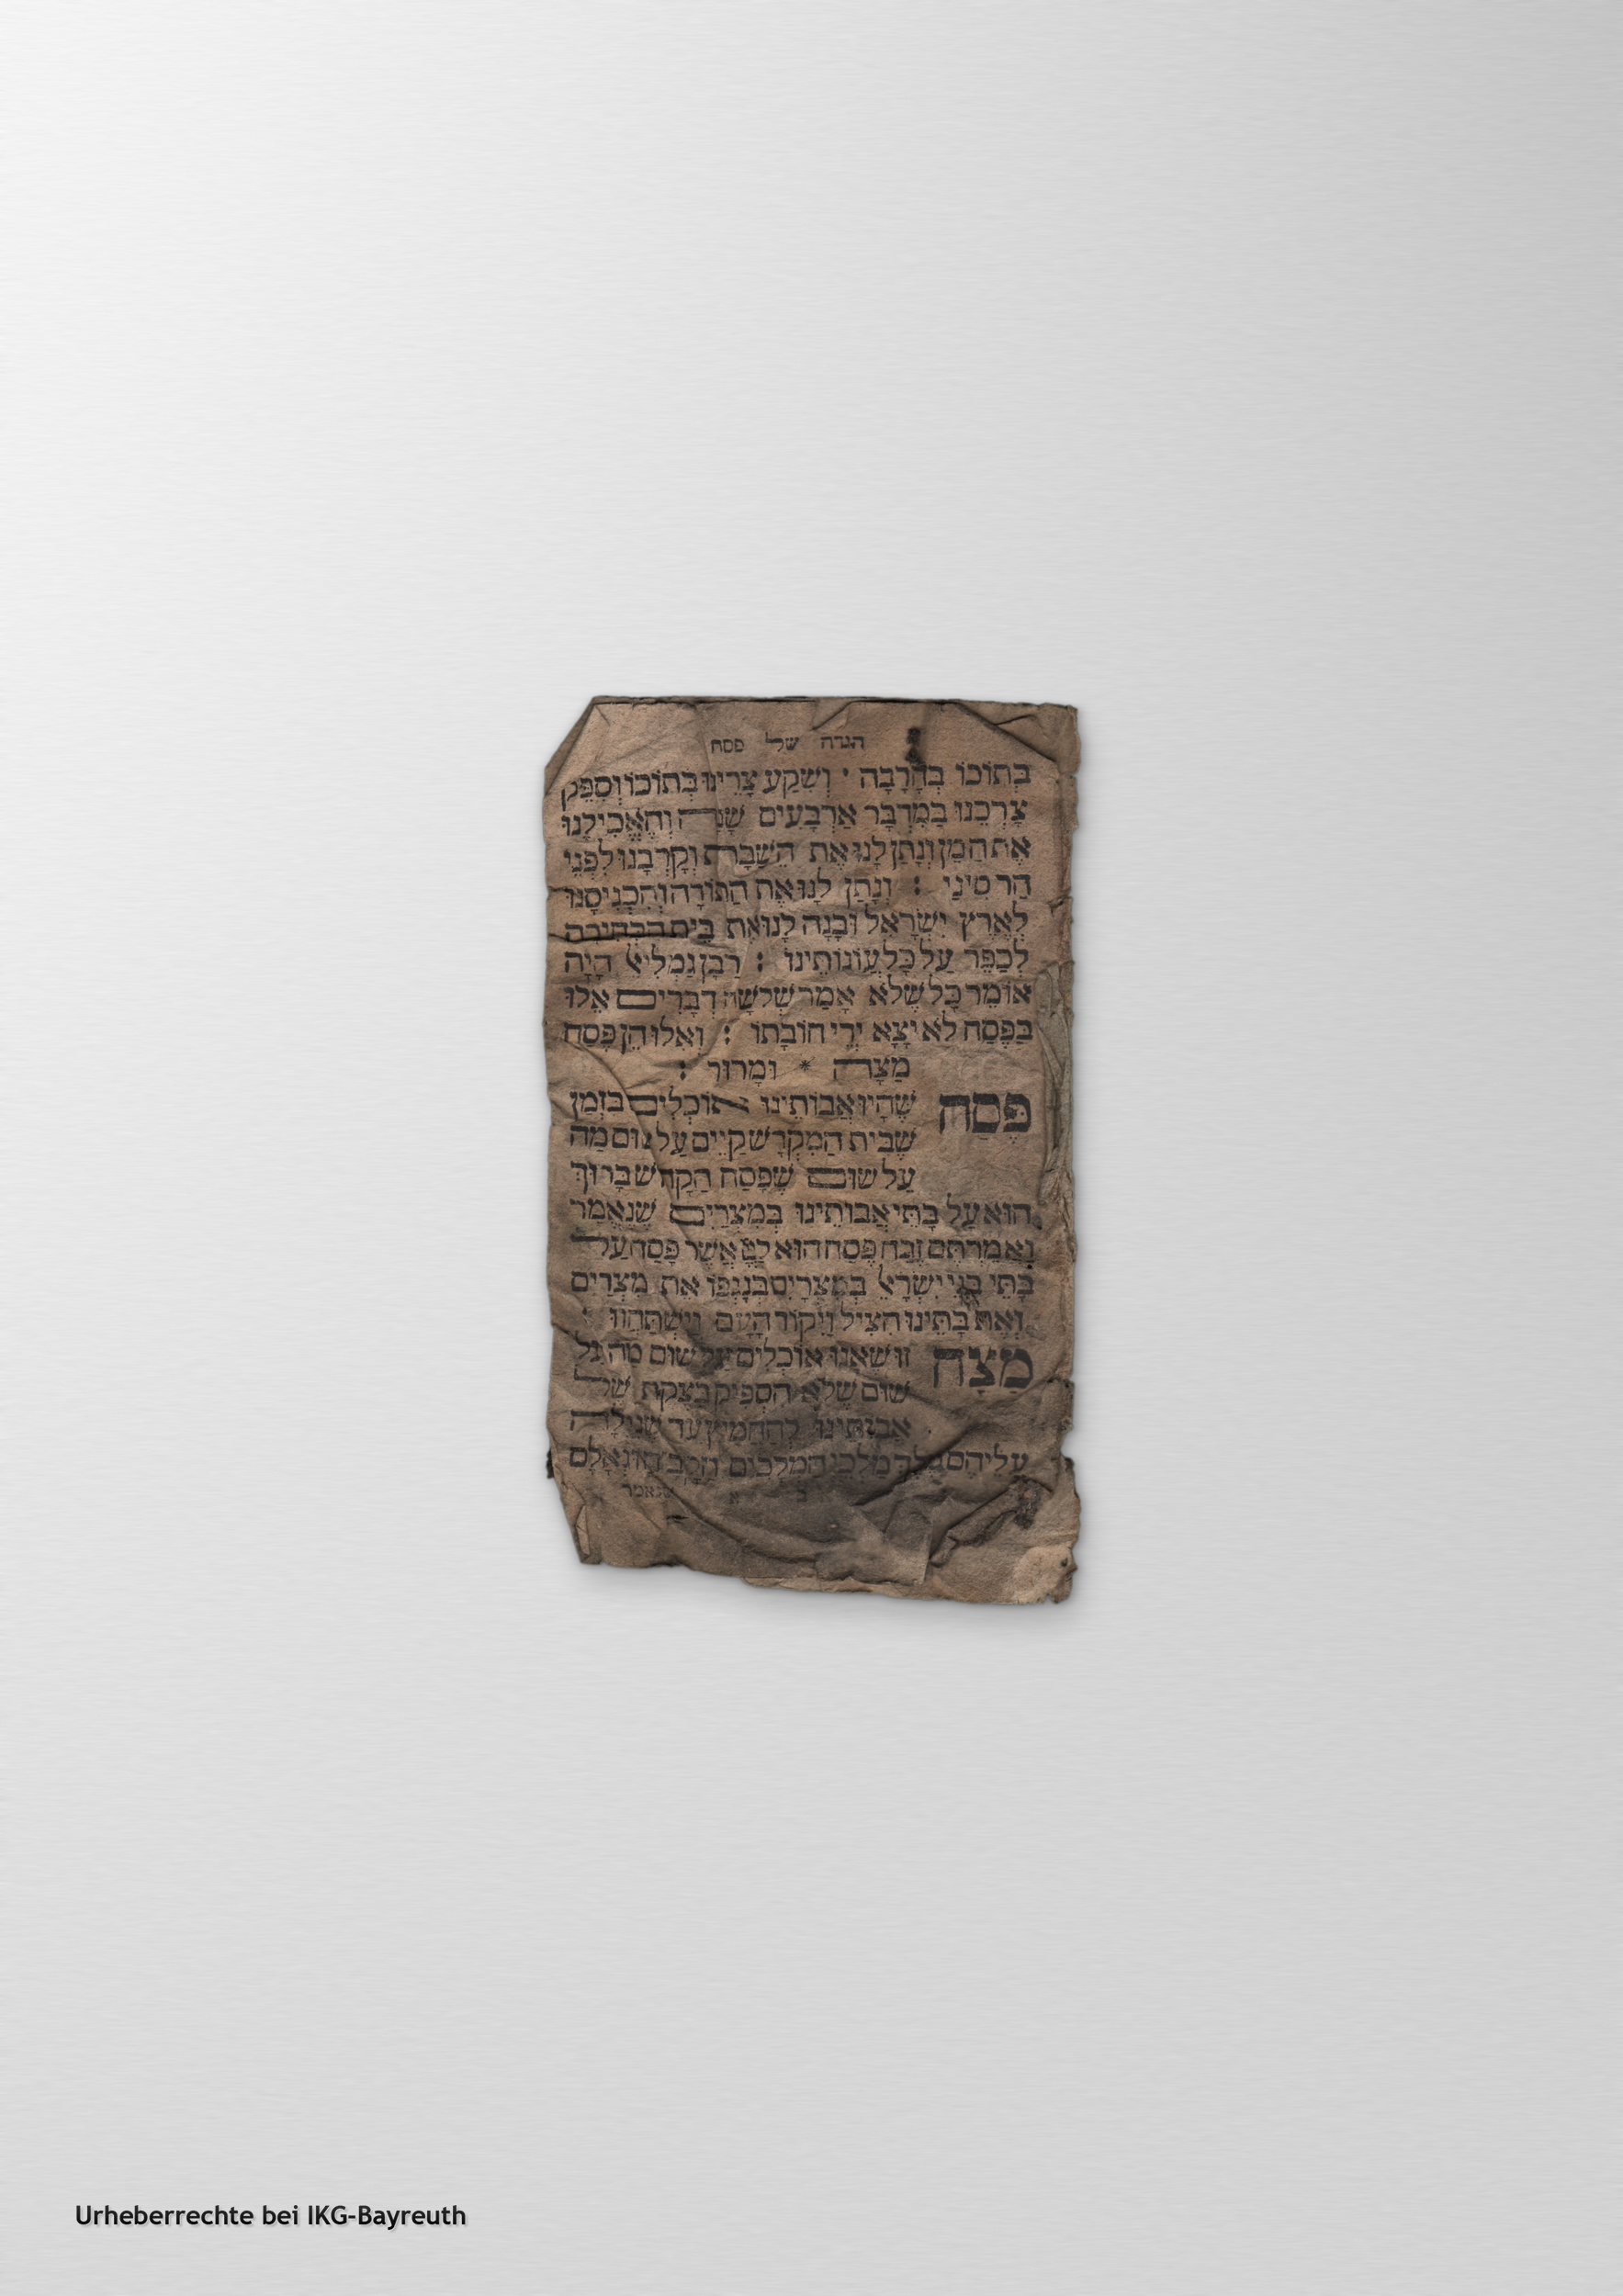 הגדה של פסח
בְּתוֹכוֹ בְּהָרָבָה · וְשִׁקַע צָרֵינוּ בְּתוֹכוֹ וְסִפֵּק
צָרְכֵנוּ בַּמִדְבָּר אַרְבָּעִים שָׁנָה וְהֶאֱכִילָנוּ
אֶת הַמָן וְנָתַן לָנוּ אֶת הַשַׁבָּת וְקֵרְבָנוּ לִפְנֵי
הַר סִינַי : וְנָתַן לָנוּ אֶת הַתּוֹרָה וְהִכְנִיסָנוּ
לְאֶרֶץ יִשְׂרָאֵל וּבָנָה לָנוּ אֶת בֵּית הַבְּחִירָה
לְכַפֵּר עַל כָּל עֲוֹנוֹתֵינוּ : רַבָּן גַמְלִיאֵל הָיָה
אוֹמֵר כָּל שֶׁלֹא אָמַר שְׁלֹשָׁה דְבָרִים אֵלוּ
בַּפֶּסַח לֹא יָצָא יְדֵי חוֹבָתוֹ : וְאֵלוּ הֵן פֶּסַח
מַצָה * וּמָרוֹר :
פֶּסַח שֶׁהָיוּ אֲבוֹתֵינוּ אוֹכְלִים בִּזְמַן
שֶׁבֵּית הַמִקְדָשׁ קַיָים עַל שׁוּם מַה
עַל שׁוּם שֶׁפָּסַח הַקָדוֹשׁ בָּרוּךְ
הוּא עַל בָּתֵּי אֲבוֹתֵינוּ בְּמִצְרַיִם שֶׁנֶאֱמַר
וַאֲמַרְתֶּם זֶבַח פֶּסַח הוּא לַיְיָ אֲשֶׁר פָּסַח עַל
בָּתֵּי בְנֵי יִשְׂרָאֵל בְּמִצְרַיִם בְּנָגְפּוֹ אֶת מִצְרַיִם
וְאֶת בָּתֵּינוּ הִצִיל וַיִקוֹד הָעָם וַיִשְׁתַּחֲווּ
מַצָה זוֹ שֶׁאָנוּ אוֹכְלִים עַל שׁוּם מַה עַל
שׁוּם שֶׁלֹא הִסְפִּיק בְּצֵקָת שֶׁל
אֲבוֹתֵינוּ לְהַחֲמִיץ עַד שֶׁנִגְלָה
עֲלֵיהֶם מֶלֶךְ מַלְכֵי הַמְלָכִים הַקָבָּ"ה וּגְאָלָם
שנאמר
Urheberrechte bei IKG-Bayreuth